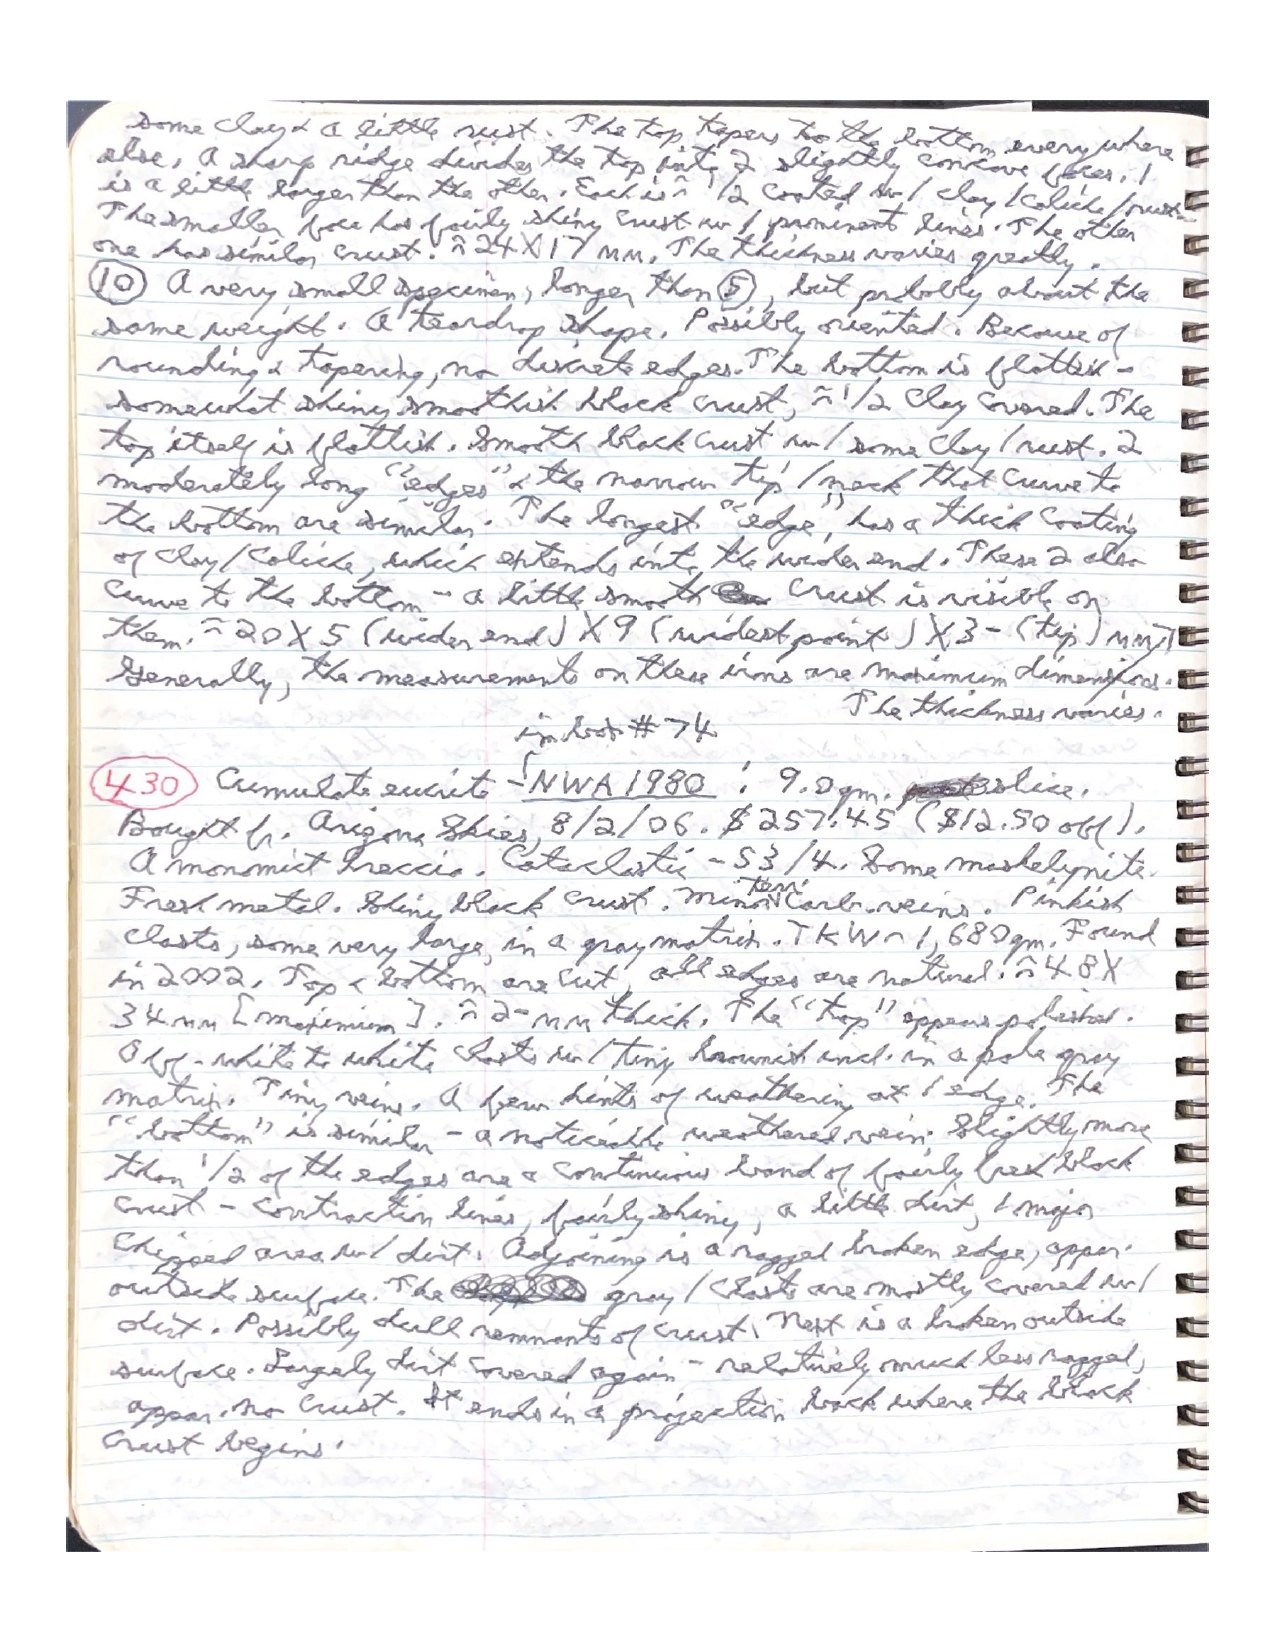 some clay & a little rust. The top tapers to the bottom everywhere
else. A sharp ridge divides the top into 2 slightly concave faces. 1
is a little larger than the other. Each is ≈ 1/2 coated w/ clay/caliche/rust.
The smaller face has fairly shiny crust w/ prominent lines. The other
one has similar crust. ≈ 24 X 17 mm. The thickness varies greatly.
(10) A very small specimen, longer than (5), but probably about the
same weight. A teardrop shape. Possibly oriented. Because of
rounding & tapering, no discrete edges. The bottom is flattish -
somewhat shiny smoothish black crust, ≈ 1/2 clay covered. The
top itself is flattish. Smooth black crust w/ some clay/rust. 2
moderately long "edges" & the narrow tip/neck that curve to
the bottom are similar. The longest "edge" has a thick coating
of clay/caliche, which extends into the wider end. These 2 also
curve to the bottom - a little smooth crust is visible on
them. ≈ 20 X 5 (wider end) X 9 (widest point) X 3- (tip) mm.
Generally, the measurements on these irons are maximum dimensions.
The thickness varies.
in box # 74
430 Cumulate eucrite - NWA 1980 : 9.0 gm. slice.
Bought fr. Arizona Skies, 8/2/06. $257.45 ($12.50 off).
A monomict breccia. Cataclastic - S3/4. Some maskelynite.
Fresh metal. Shiny black crust. Minor terr. carb. veins. Pinkish
clasts, some very large, in a gray matrix. TKW ~ 1,680 gm. Found
in 2002. Top & bottom are cut, all edges are natural. ≈ 48 X
34 mm [maximum]. ≈ 2- mm thick. The "top" appears polished.
Off-white to white clasts w/ tiny brownish incl. in a pale gray
matrix. Tiny veins. A few hints of weathering at 1 edge. The
"bottom" is similar - a noticeable weathered vein. Slightly more
than 1/2 of the edges are a continuous band of fairly fresh black
crust - contraction lines, fairly shiny, a little dirt, 1 major
chipped area w/ dirt. Adjoining is a ragged broken edge, appar.
outside surface. The gray/clasts are mostly covered w/
dirt. Possibly dull remnants of crust. Next is a broken outside
surface. Largely dirt covered again - relatively much less ragged,
appar. no crust. It ends in a projection back where the black
crust begins.